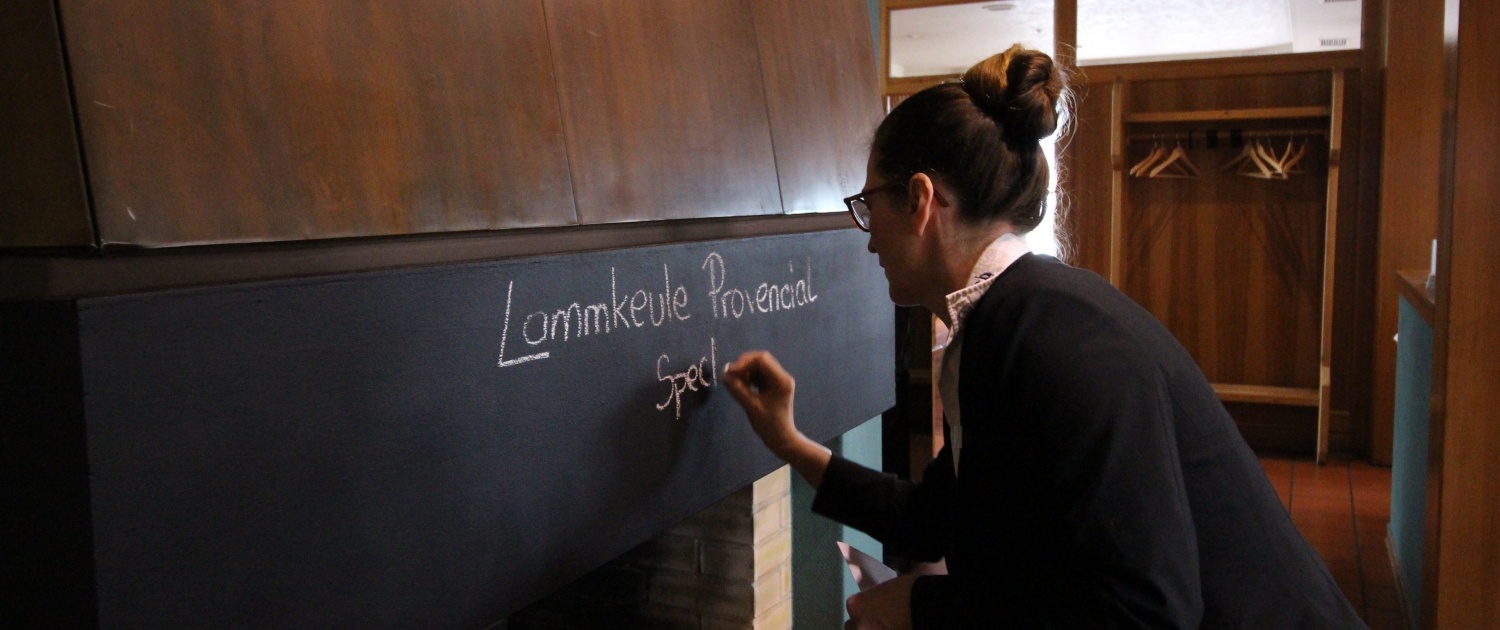 Lammkeule Provencial
Specl